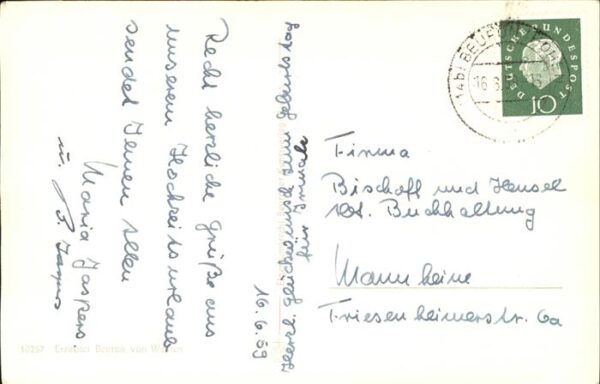 Recht herzliche Grüße aus
unserem Hochzeitsurlaub
sendet Ihnen allen
Maria Jaspers
u. P. Jaspers
16.6.59
Herzl. Glückwunsch zum Geburtstag
für Irmale
Firma
Bischoff und Hensel
Abt. Buchhaltung
Mannheim
Friesenheimerstr. 6a
DEUTSCHE BUNDESPOST
10
(14b) BEURON
16.6.
50257 Erzabtei Beuron von Westen